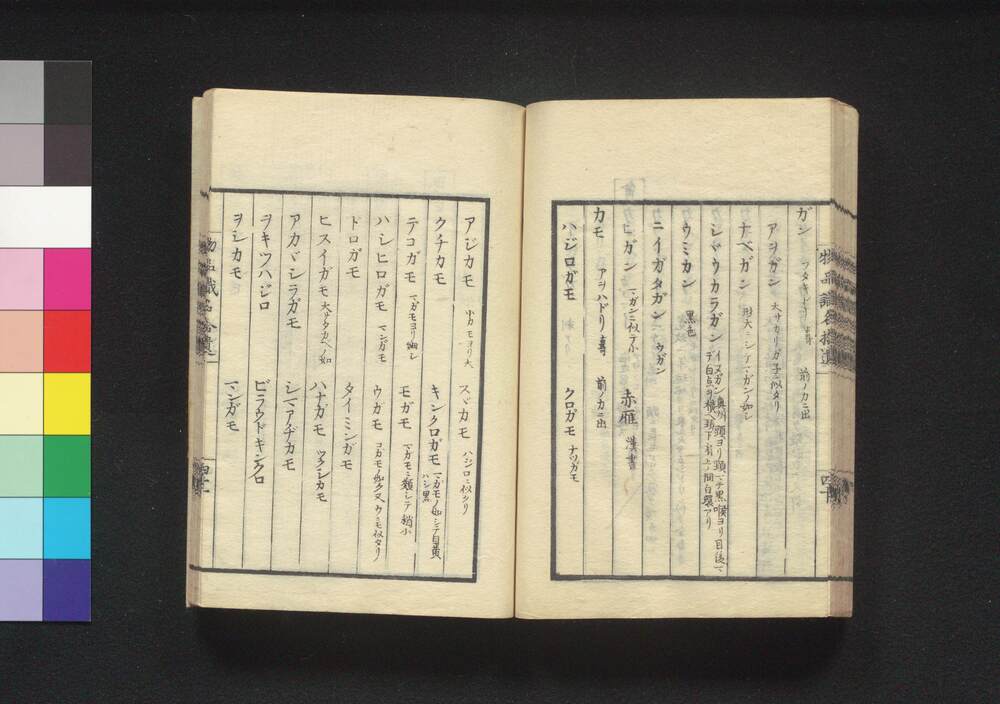 ガン フタキドリ 壽 前ノカニ出
アヲガン 大サカリガ子ニ似タリ
ナベガン 形大ニシテマガンノ如シ
シジウカラガン イヌガン奥州 頭ヨリ頸マデ黒喉ヨリ目後マデ白点ヲ横ヘ頸下
ウミカン 黒色
ニイガタガン ウガン
ヒガン マガンニ似テ小 赤雁 漢書
カモ アヲハドリ 壽 前ノカニ出
ハジロガモ クロガモ ナツガモ
物品識名拾遺
アジカモ 小カモヨリ大 スヾカモ ハジロニ似タリ
クチカモ キンクロガモ マガモノ如シテ目黄ハシ黒
テコガモ マガモヨリ細シ モガモ マガモニ類シテ稍小
ハシヒロガモ マンガモ ウカモ コガモノ如ク又ウニモ似タリ
トロガモ タイミンガモ
ヒスイガモ 大サタカベノ如 ハナガモ ツクシカモ
アカヾシラガモ シマアヂカモ
ヲキツハジロ ビラウドキンクロ
ヲシカモ マンガモ
物品識名拾遺